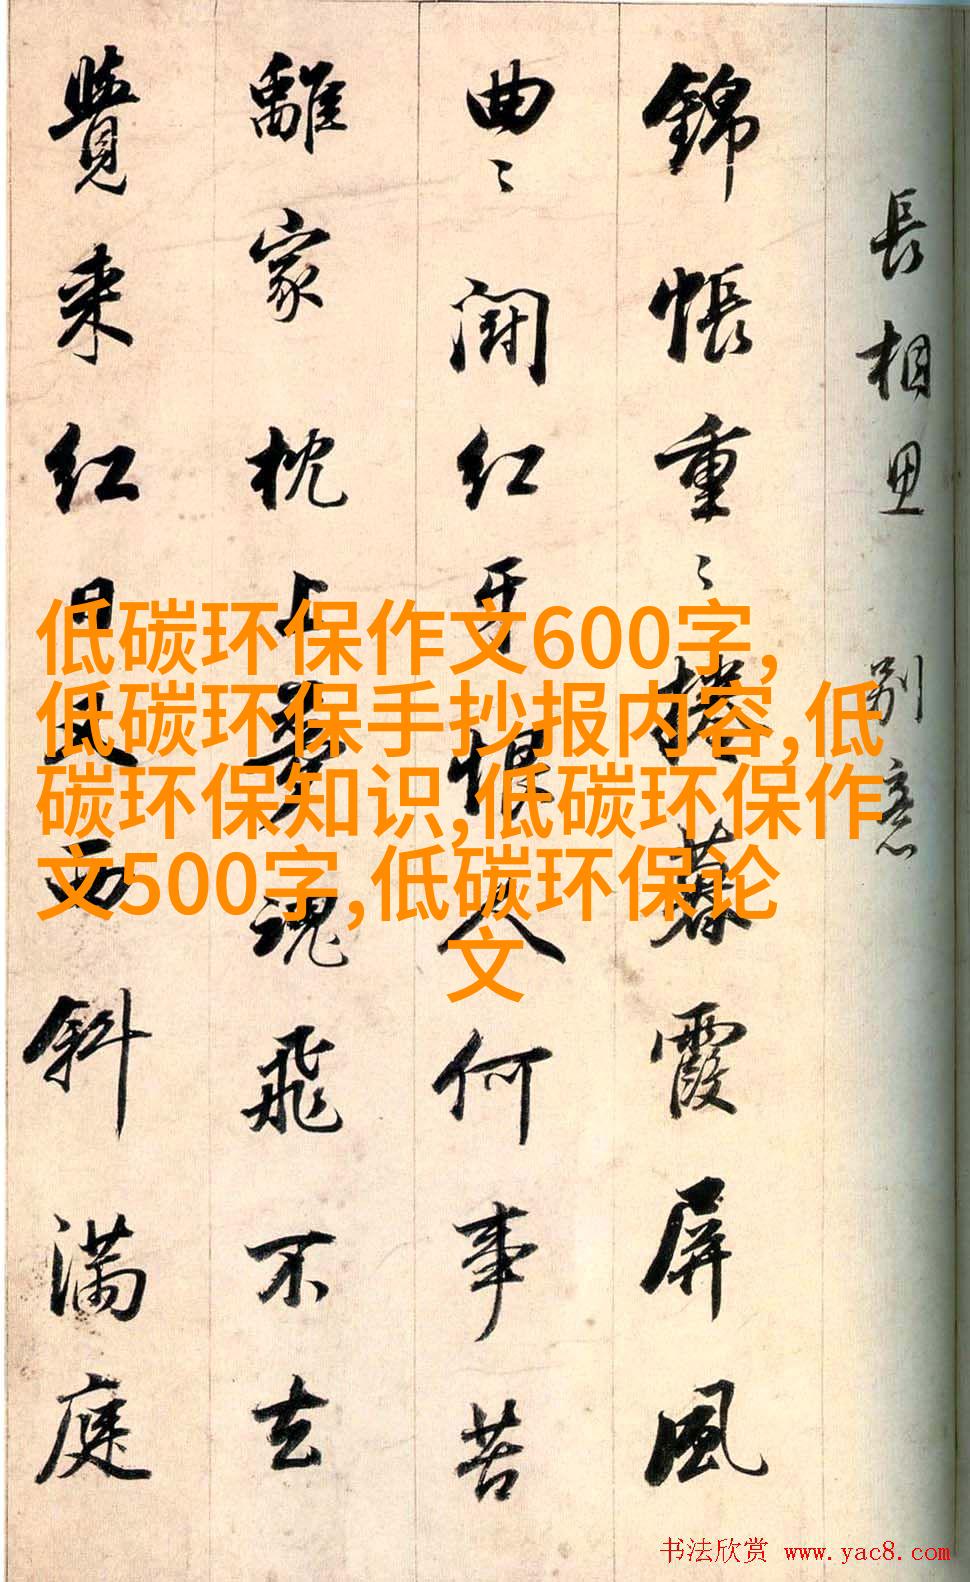 長相思 別意
錦帳重〻捲暮霞屏風
曲〻闘红牙恨人何事苦
離家枕上夢魂飛不去
覺来红日又西斜满庭
低碳环保作文600字,
低碳环保手抄报内容,低
碳环保知识,低碳环保作
文500字,低碳环保论
文
书法欣赏 www.yac8.com